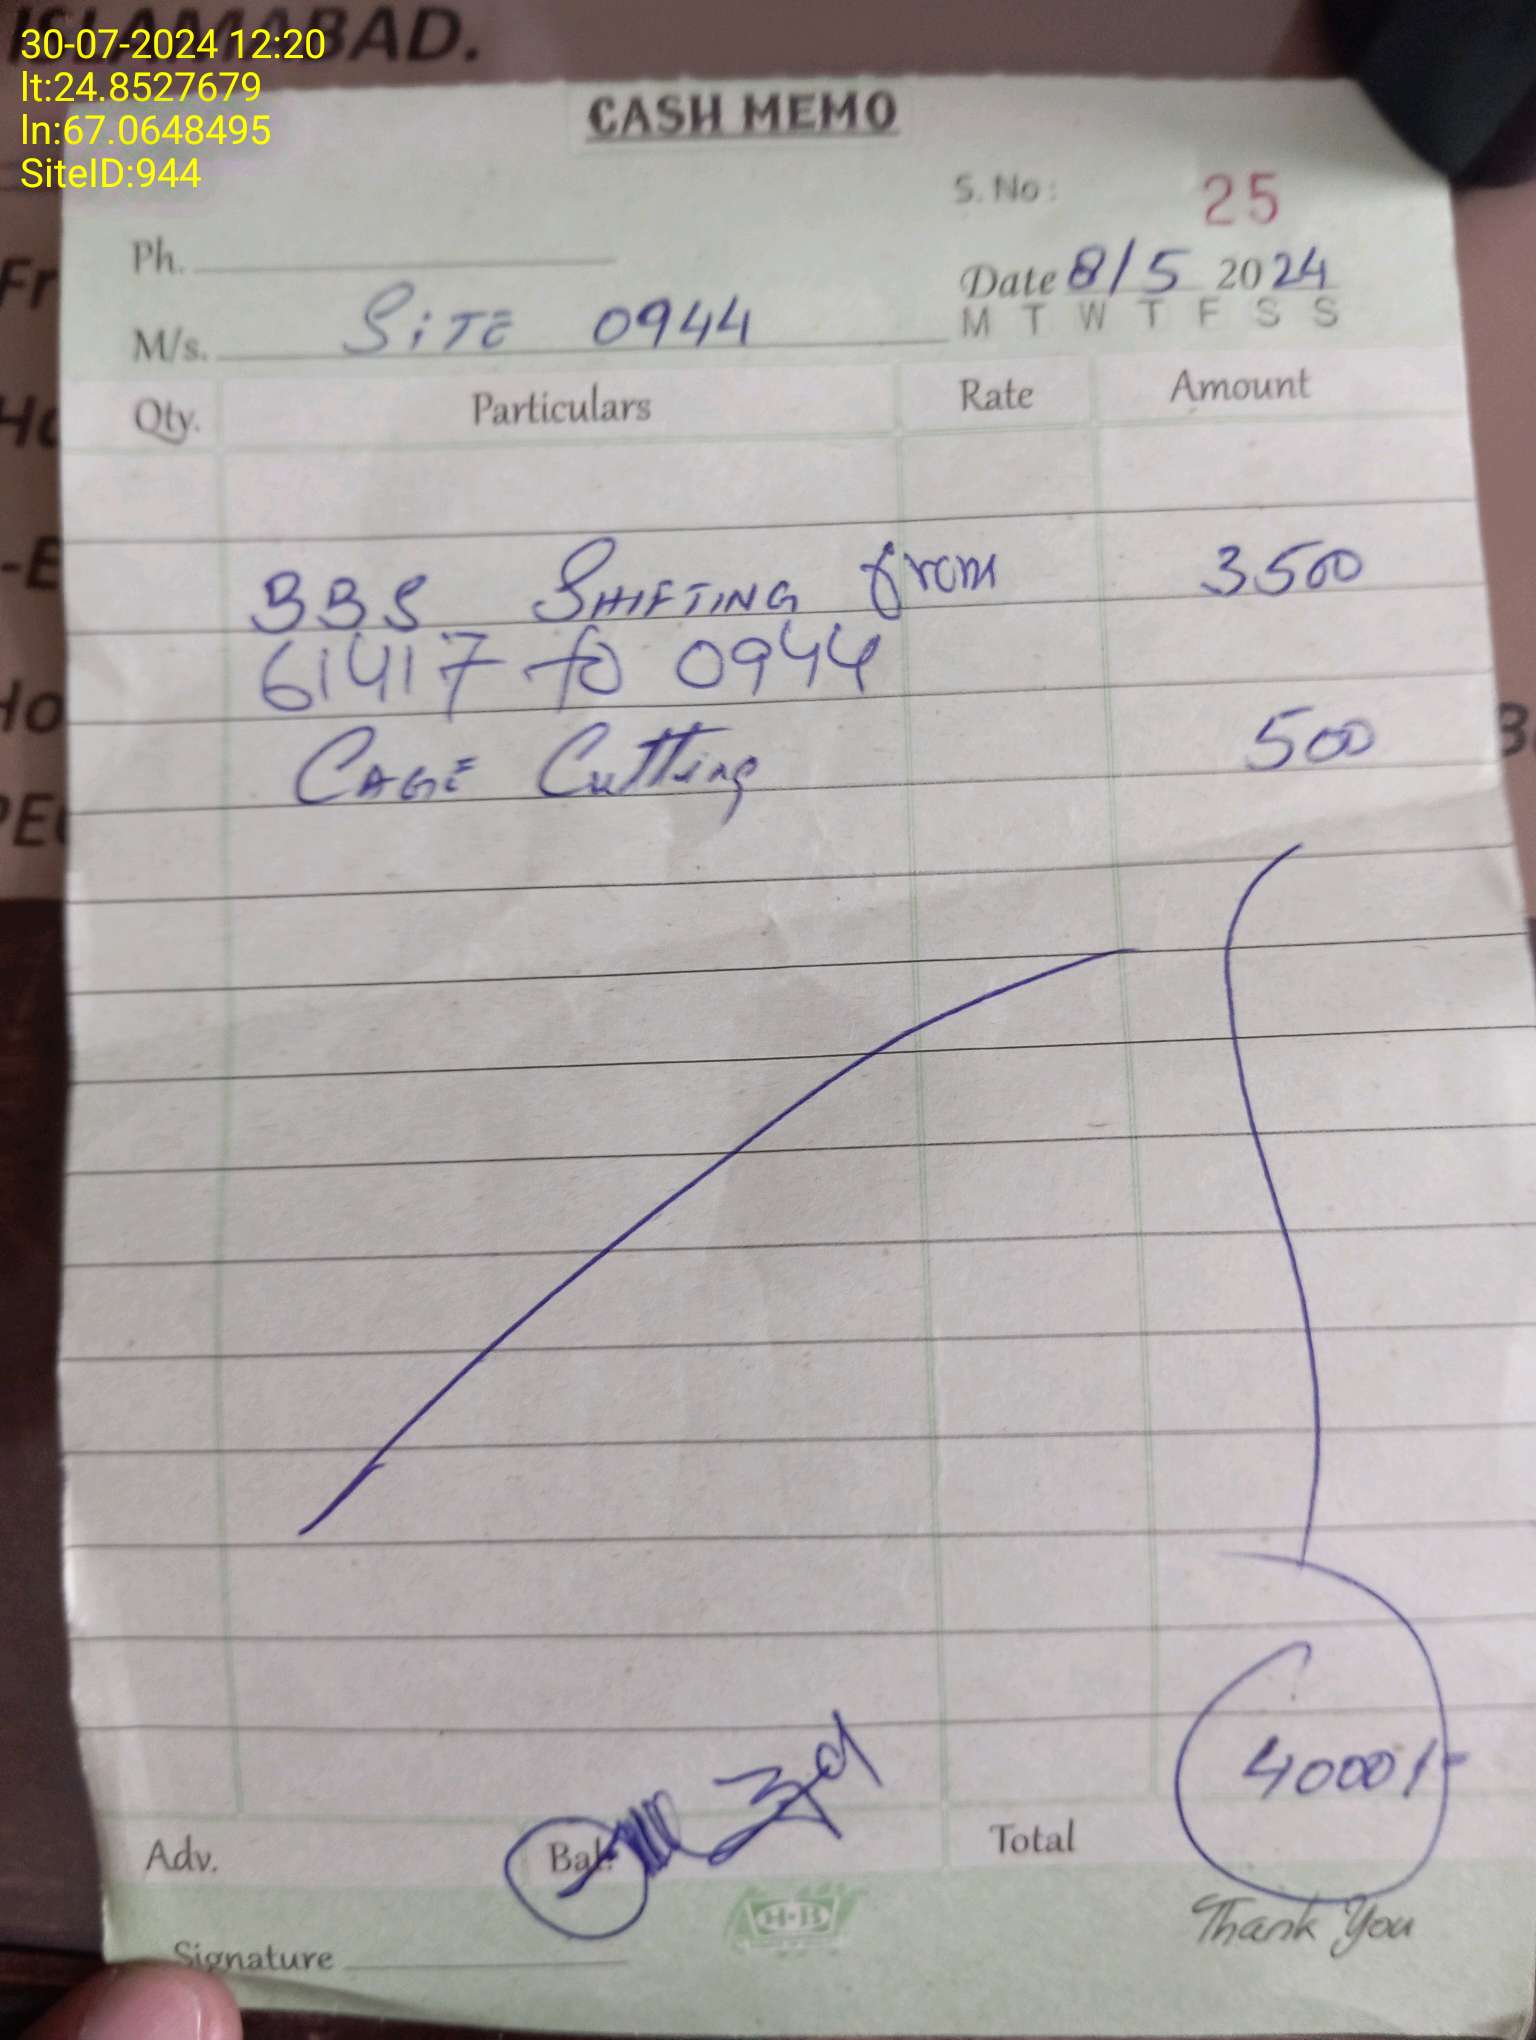 ISLAMABAD.
30-07-2024 12:20
lt:24.8527679
ln:67.0648495
SiteID:944
CASH MEMO
S. No: 25
Ph.
Date 8/5 2024
M T W T F S S
M/s. SiTE 0944
Qty. Particulars Rate Amount
BBS SHIFTING from 3500
61417 to 0944
CAGE Cutting 500
4000/-
Adv. Bal. Total
H-B
Thank You
Signature